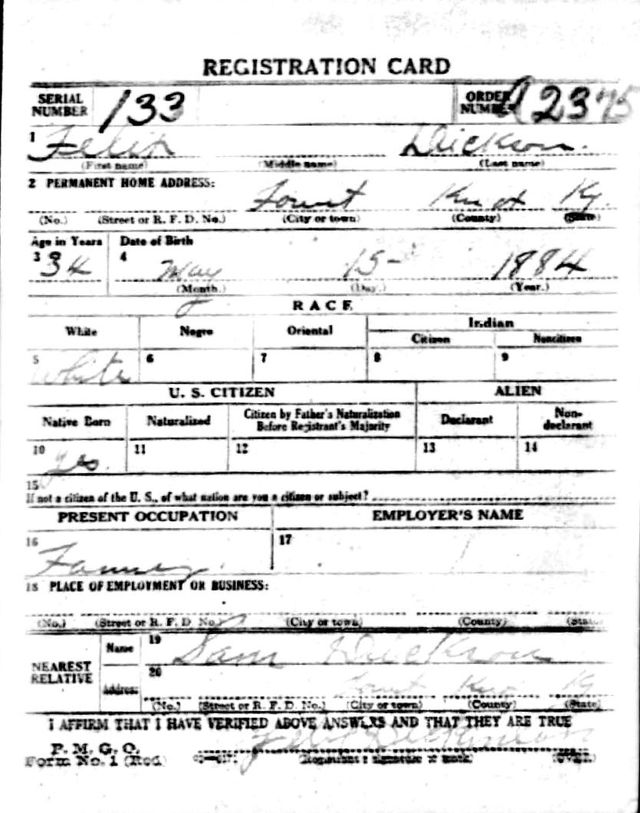 REGISTRATION CARD
SERIAL NUMBER 133 ORDER NUMBER A2375
1 Felix Dickson.
(First name) (Middle name) (Last name)
2 PERMANENT HOME ADDRESS: Fount Knox Ky.
(No.) (Street or R. F. D. No.) (City or town) (County) (State)
Age in Years Date of Birth
3 34 4 May 15- 1884
(Month.) (Day.) (Year.)
RACE
White Negro Oriental Indian
Citizen Noncitizen
5 White 6 7 8 9
U. S. CITIZEN ALIEN
Native Born Naturalized Citizen by Father's Naturalization Before Registrant's Majority Declarant Non-declarant
10 yes 11 12 13 14
15
If not a citizen of the U. S., of what nation are you a citizen or subject?
PRESENT OCCUPATION EMPLOYER'S NAME
16 17
18 PLACE OF EMPLOYMENT OR BUSINESS:
(No.) (Street or R. F. D. No.) (City or town) (County) (State)
NEAREST RELATIVE Name 19 Sam Dickson
Address 20 Fount Knox Ky
(No.) (Street or R. F. D. No.) (City or town) (County) (State)
I AFFIRM THAT I HAVE VERIFIED ABOVE ANSWERS AND THAT THEY ARE TRUE
P. M. G. O.
Form No. 1 (Red) (Registrant's signature or mark) (OVER)